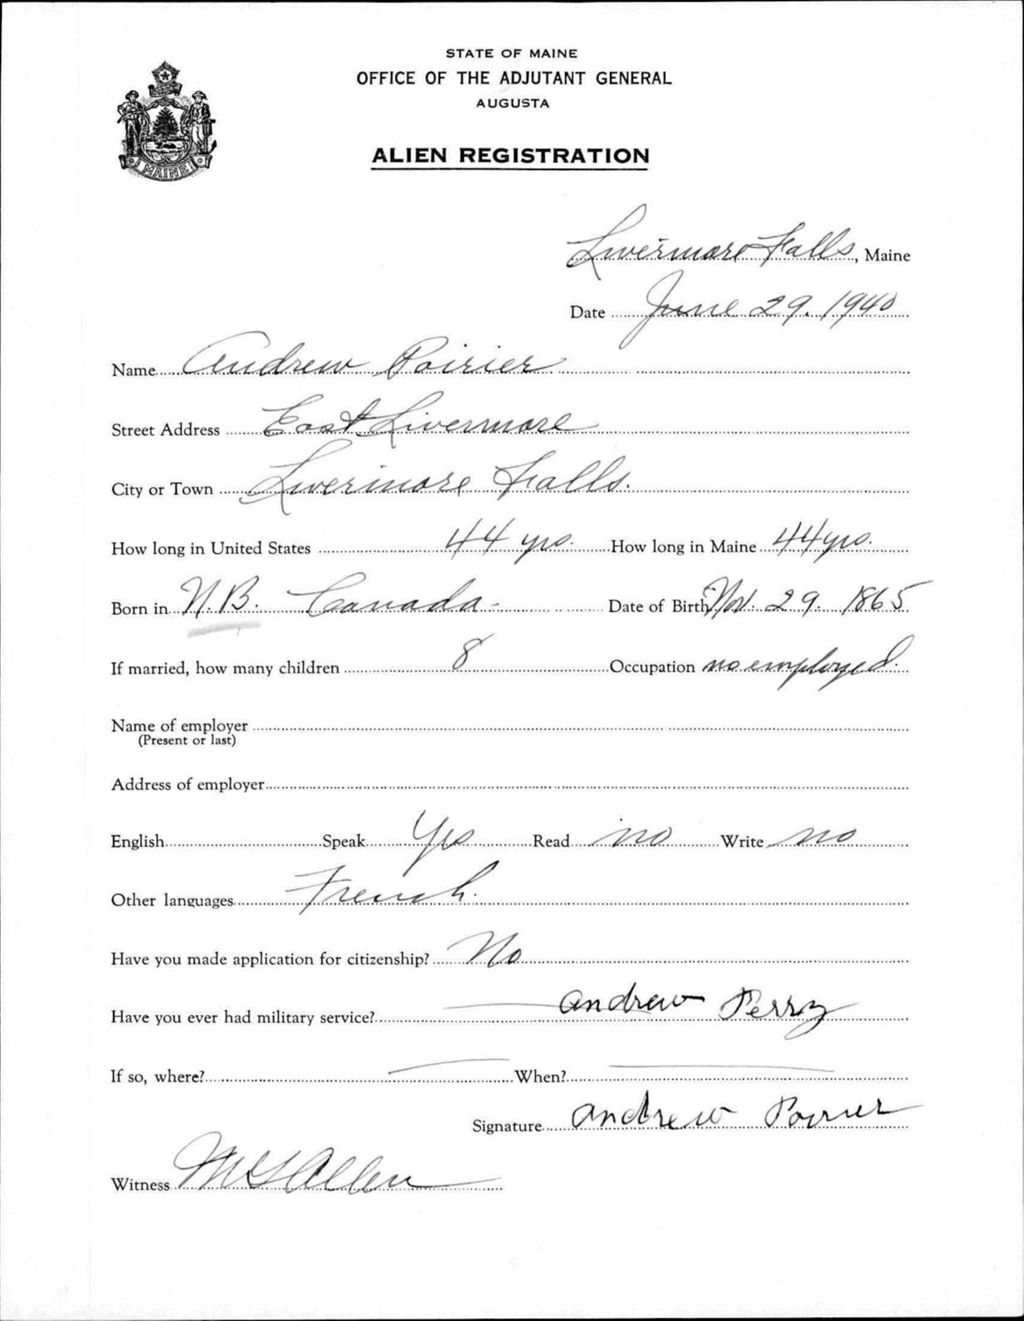 STATE OF MAINE
OFFICE OF THE ADJUTANT GENERAL
AUGUSTA
ALIEN REGISTRATION
MAINE
Livermore Falls, Maine
Date June 29. 1940
Name Andrew Poirier
Street Address East Livermore
City or Town Livermore Falls.
How long in United States 44 yrs. How long in Maine 44 yrs.
Born in N.B. Canada - Date of Birth Nov. 29. 1865
If married, how many children 8 Occupation no employed.
Name of employer
(Present or last)
Address of employer
English Speak Yes Read no Write no
Other languages French.
Have you made application for citizenship? No
Have you ever had military service? — Andrew Perry
If so, where? — When? —
Signature Andrew Poirier
Witness Allen